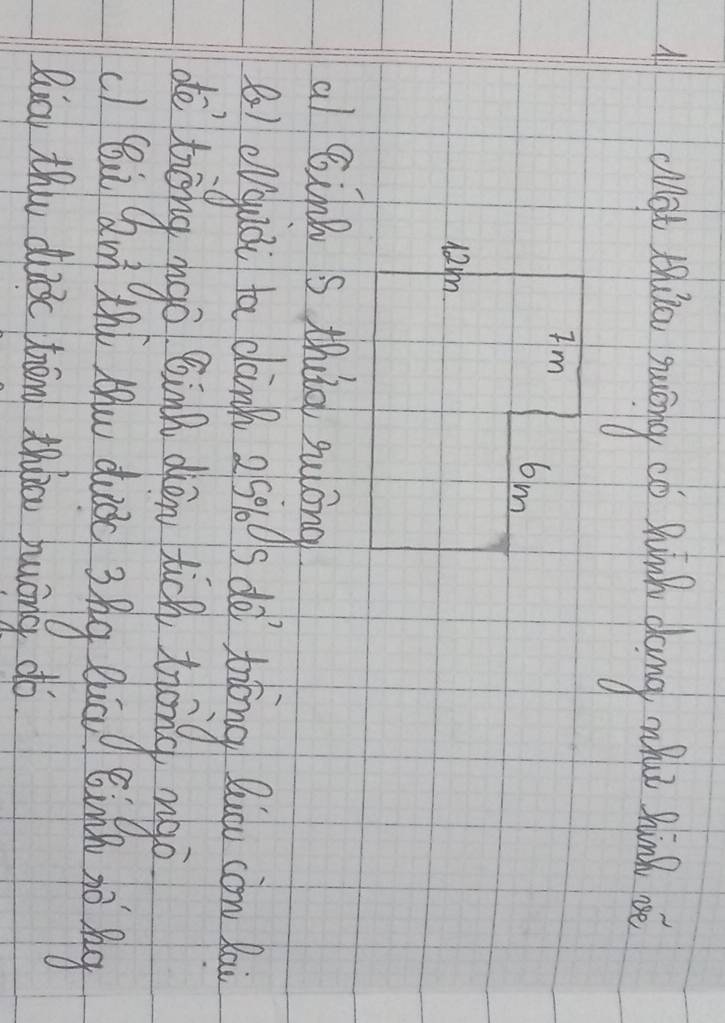 1
Một thửa ruộng có hình dạng như hình vẽ
7m
6m
12m
a) Tính S thửa ruộng
b) Người ta dành 25% S để trồng lúa còn lại
để trồng ngô. Tính diện tích trồng ngô
c) Cứ 2m² thì thu được 3kg lúa. Tính số kg
lúa thu được trên thửa ruộng đó.